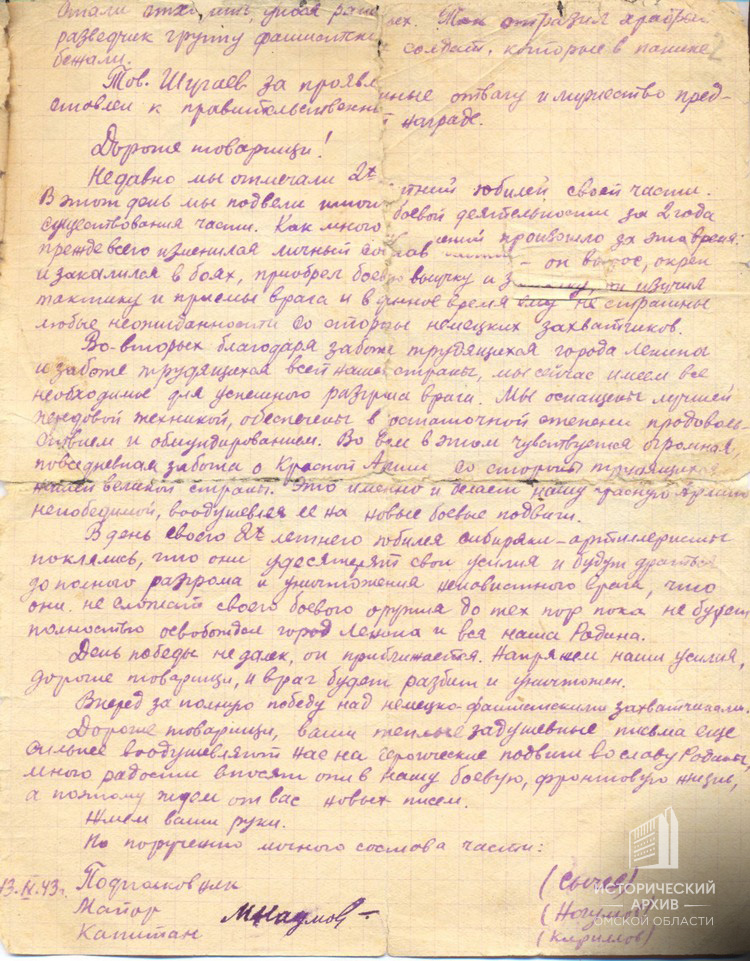 разведчик группу фашистских солдат, которые в панике 2
бежали.
Тов. Шугаев за проявленные отвагу и мужество пред-
ставлен к правительственной награде.
Дорогие товарищи!
Недавно мы отмечали 2х летний юбилей своей части.
В этот день мы подвели итоги боевой деятельности за 2 года
существования части. Как много произошло за это время:
прежде всего изменился личный состав – он вырос, окреп
и закалился в боях, приобрел боевую выучку и изучил
тактику и приемы врага и в данное время ему не страшны
любые неожиданности со стороны немецких захватчиков.
Во-вторых благодаря заботе трудящихся города Ленина
и заботе трудящихся всей нашей страны, мы сейчас имеем все
необходимое для успешного разгрома врага. Мы оснащены лучшей
передовой техникой, обеспечены в достаточной степени продоволь-
ствием и обмундированием. Во всем в этом чувствуется огромная,
повседневная забота о Красной Армии со стороны трудящихся
нашей великой страны. Это именно и делает нашу Красную Армию
непобедимой, воодушевляя ее на новые боевые подвиги.
В день своего 2х летнего юбилея сибиряки-артиллеристы
поклялись, что они удесятерят свои усилия и будут драться
до полного разгрома и уничтожения ненавистного врага, что
они не сложат своего боевого оружия до тех пор пока не будет
полностью освобожден город Ленина и вся наша Родина.
День победы не далек, он приближается. Напряжем наши усилия,
дорогие товарищи, и враг будет разбит и уничтожен.
Вперед за полную победу над немецко-фашистскими захватчиками.
Дорогие товарищи, ваши теплые задушевные письма еще
сильнее воодушевляют нас на героические подвиги во славу Родины,
много радости вносят они в нашу боевую, фронтовую жизнь,
а поэтому ждем от вас новых писем.
Жмем ваши руки.
По поручению личного состава части:
13.IX.43г. Подполковник (Сычев)
Майор МНаумов (Наумов)
Капитан (Кириллов)
ИСТОРИЧЕСКИЙ
АРХИВ
ОМСКОЙ ОБЛАСТИ